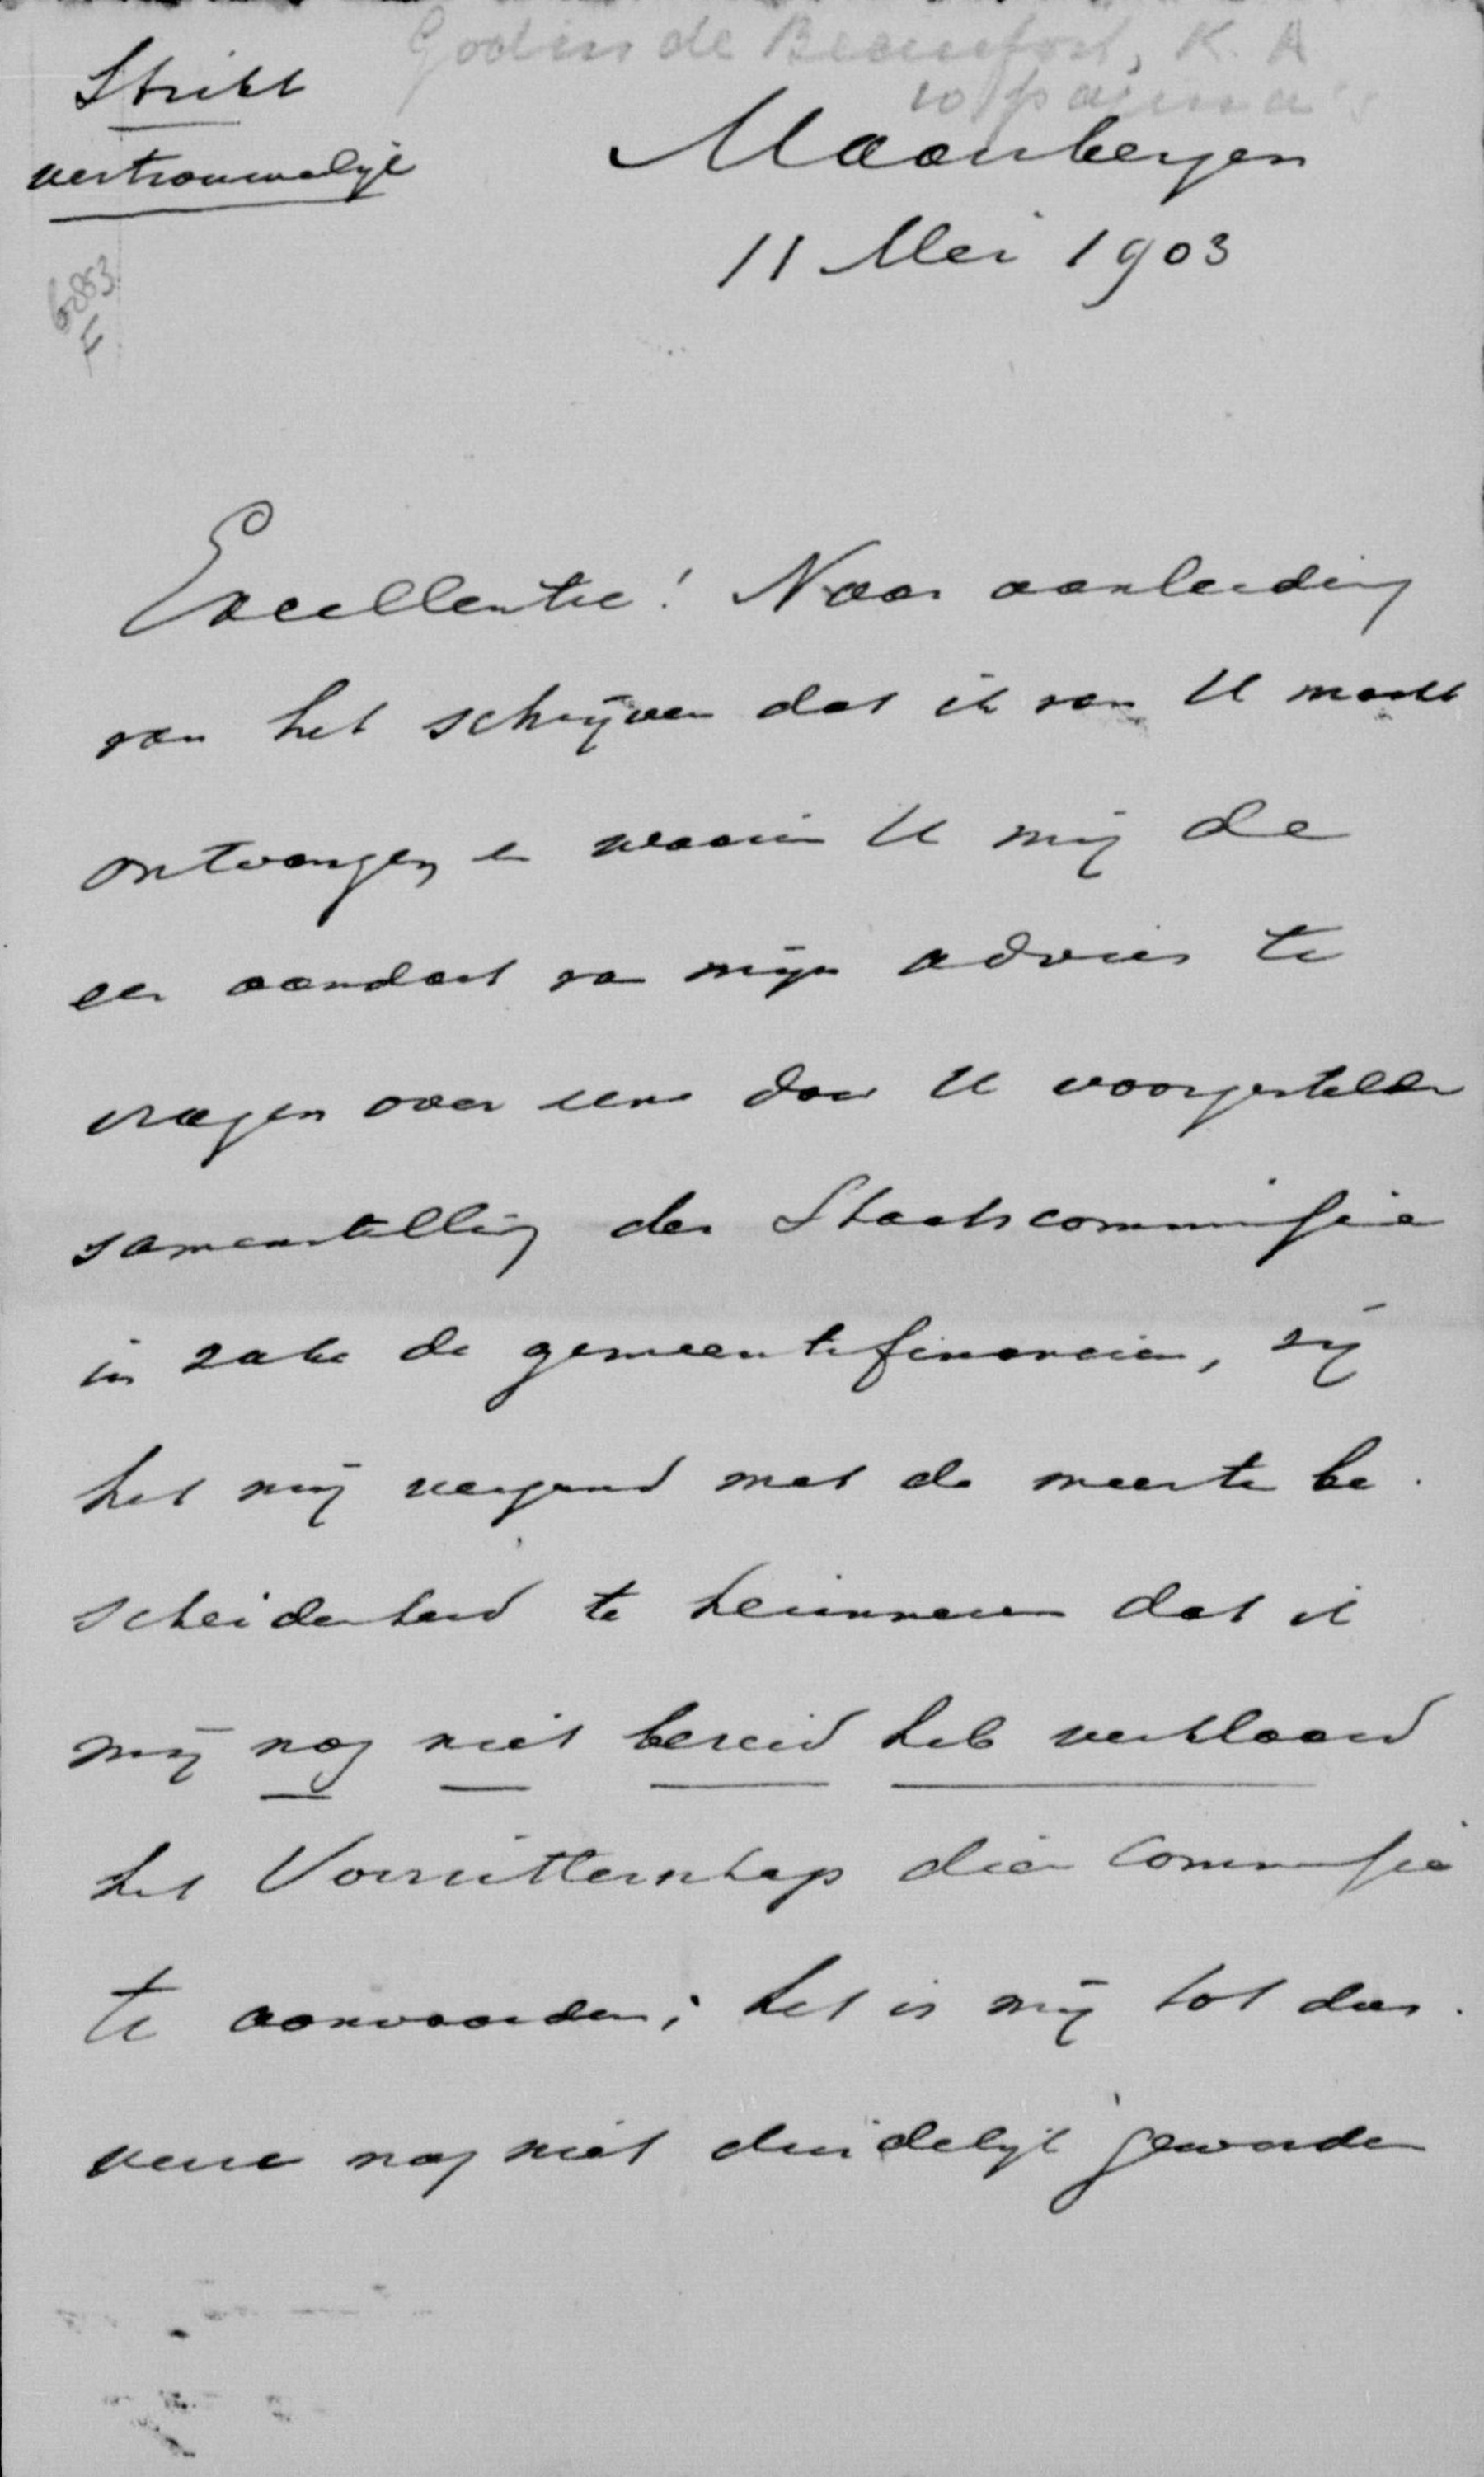 Godin de Beaufort, K. A
10 pagina's
Strikt
vertrouwelijk
Maarnbergen
11 Mei 1903
6283
F
Excellentie! Naar aanleiding
van het schrijven dat ik van U mocht
ontvangen, en waarin U mij de
eer aandoet van mijn advies te
vragen over eene door U voorgestelde
samenstelling der Staatscommissie
in zake de gemeentefinancien, zij
het mij vergund met de meeste be-
scheidenheid te herinneren dat ik
mij nog niet bereid heb verklaard
het Voorzitterschap dier Commissie
te aanvaarden; het is mij tot dus-
verre nog niet duidelijk geworden